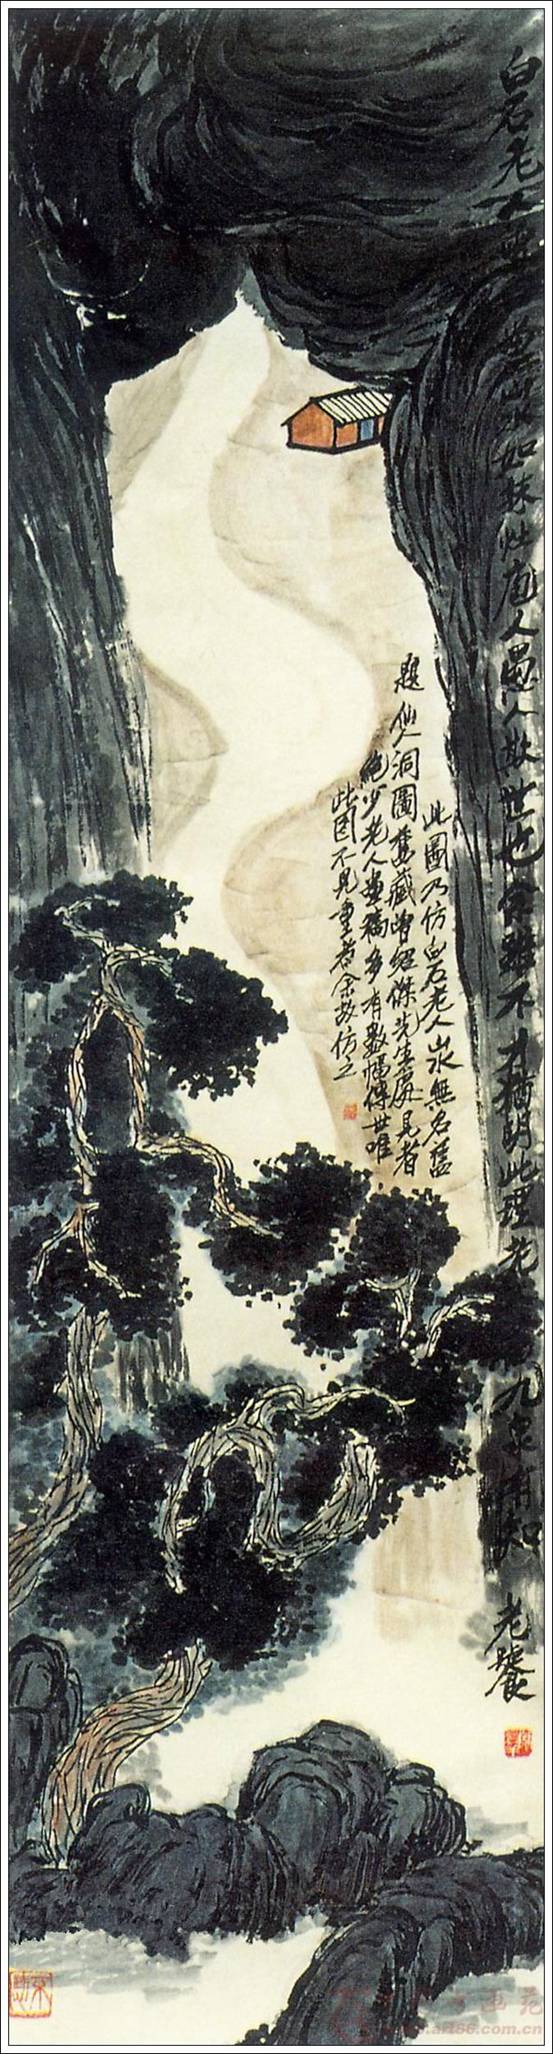 白石老人
世山水如林灶庖人愚人欺世也余雖不才猶明此理先
九泉有知
老饕
此圖乃仿白石老人山水無名舊
題仙人洞圖舊藏曾紹傑先生處見者
絕少老人畫稿多有數幅傳世唯
此圖不見重者余故仿之
.art66.com.cn